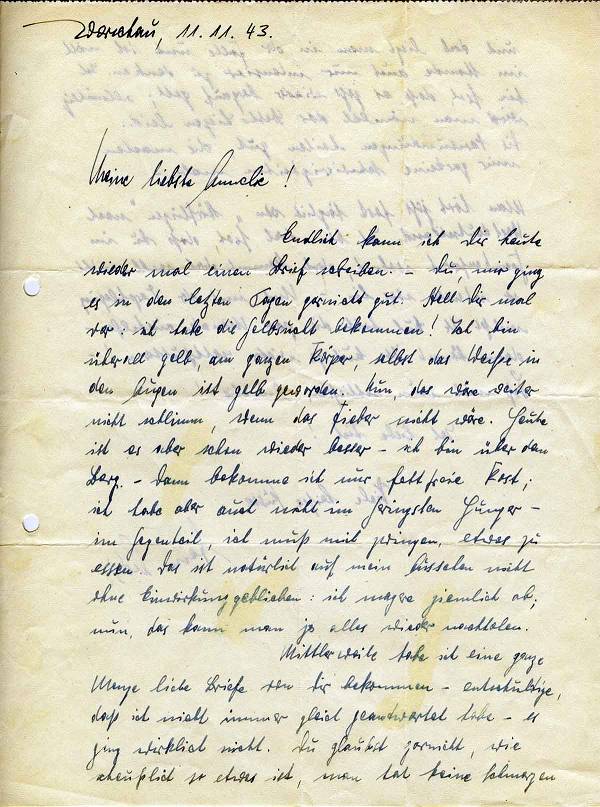 Warschau, 11.11.43.
Meine liebste Annelie!
Endlich kann ich dir heute
wieder mal einen Brief schreiben. – Du, mir ging
es in den letzten Tagen garnicht gut. Stell dir mal
vor: ich habe die Gelbsucht bekommen! Ich bin
überall gelb, am ganzen Körper, selbst das Weiße in
den Augen ist gelb geworden. Nun, das wäre weiter
nicht schlimm, wenn das Fieber nicht wäre. Heute
ist es aber schon wieder besser – ich bin über den
Berg. – Dann bekomme ich nur fettfreie Kost;
ich habe aber auch nicht im Geringsten Hunger –
im Gegenteil, ich muß mich zwingen, etwas zu
essen. Das ist natürlich auf mein Aussehen nicht
ohne Einwirkung geblieben: ich magere ziemlich ab;
nun, das kann man ja alles wieder nachholen.
Mittlerweile habe ich eine ganze
Menge liebe Briefe von dir bekommen – entschuldige,
daß ich nicht immer gleich geantwortet habe – es
ging wirklich nicht. Du glaubst garnicht, wie
scheußlich so etwas ist, man hat keine Schmerzen